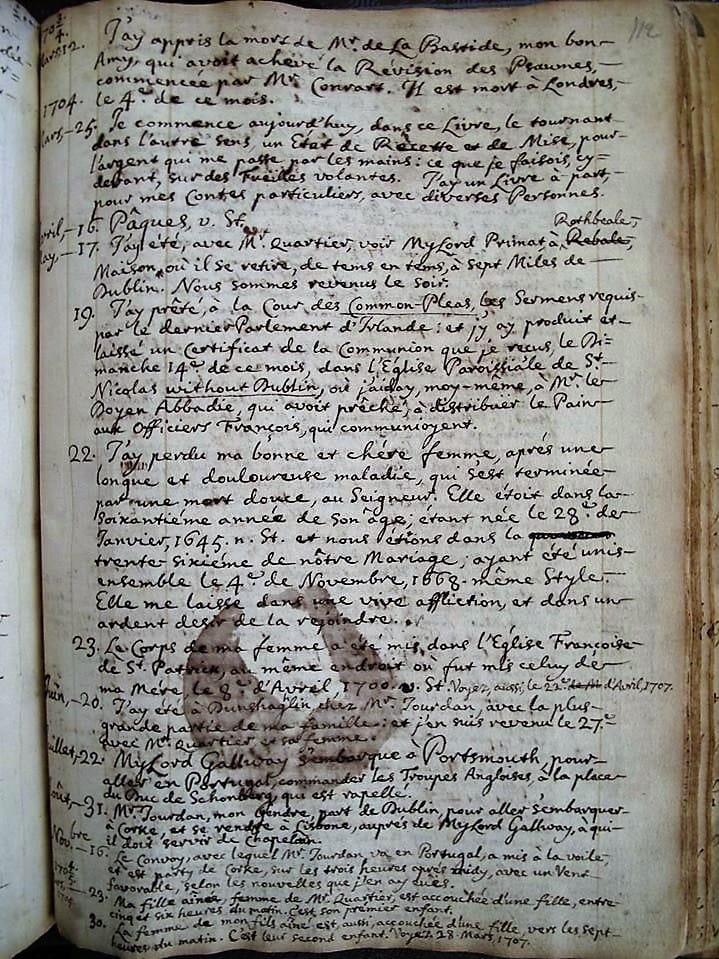 112
170¾.
Mars. 12. J'ay appris la mort de Mr. de La Bastide, mon bon
Amy, qui avoit achevé la Révision des Pseaumes,
commencée par Mr. Conrart. Il est mort à Londres,
le 4e. de ce mois.
1704.
Mars, 25. Je commence aujourd'huy, dans ce Livre, le tournant
dans l'autre sens, un Etat de Recette et de Mise, pour
l'argent qui me passe par les mains: ce que je faisois, cy-
devant, sur des Fueilles volantes. J'ay un Livre à part,
pour mes Contes particuliers, avec diverses Personnes.
Avril, 16. Pâques, v. St.
Rothbeale,
May, 17. J'ay été, avec Mr. Quartier, voir MyLord Primat à Rebale,
Maison, où il se retire, de tems en tems, à sept Miles de
Dublin. Nous sommes revenus le soir.
19. J'ay prêté, à la Cour des Common-Pleas, les Sermens requis
par le dernier Parlement d'Irlande: et j'y ay produit et
laissé un Certificat de la Communion que je reçus, le Di-
manche 14e. de ce mois, dans l'Eglise Paroissiale de St.
Nicolas without Dublin, où j'aiday, moy-même, à Mr. le
Doyen Abbadie, qui avoit prêché, à distribuer le Pain
aux Officiers François, qui communioyent.
22. J'ay perdu ma bonne et chére femme, aprés une
longue et douloureuse maladie, qui s'est terminée
par une mort douce, au Seigneur. Elle étoit dans la
soixantiéme année de son âge; étant née le 28e. de
Janvier, 1645. n. St. et nous étions dans la
trente sixiéme de nôtre Mariage; ayant été unis
ensemble le 4e. de Novembre, 1668. même Style.
Elle me laisse dans une vive affliction, et dans un
ardent desir de la rejoindre.
23. Le Corps de ma femme a été mis, dans l'Eglise Françoise
de St. Patrick, au même endroit où fut mis celuy de
ma Mere, le 8e. d'Avril, 1700. v. St. Voyez, aussi, le 22e. d'Avril, 1707.
Juin, 20. J'ay été à Dunshaglin, chez Mr. Jourdan, avec la plus
grande partie de ma famille: et j'en suis revenu le 27e.
avec Mr. Quartier et sa femme.
Juillet, 22. MyLord Gallway s'embarque à Portsmouth, pour
aller en Portugal, commander les Troupes Angloises, à la place
du Duc de Schonberg, qui est rapellé.
Août, 31. Mr. Jourdan, mon Gendre, part de Dublin, pour aller s'embarquer
à Corke, et se rendre à Lisbone, auprés de MyLord Gallway, à qui
il doit servir de Chapelain.
Novbre. 16. Le Convoy, avec lequel Mr. Jourdan va en Portugal, a mis à la voile,
et est party de Corke, sur les trois heures aprés midy, avec un Vent
favorable, selon les nouvelles que j'en ay eües.
23. Ma fille aînée, femme de Mr. Quartier, est accouchée d'une fille, entre
cinq et six heures du matin. C'est son premier enfant.
30. La femme de mon fils aîné est, aussi, accouchée d'une fille, vers les sept
heures du matin. C'est leur second enfant. Voyez 28. Mars, 1707.